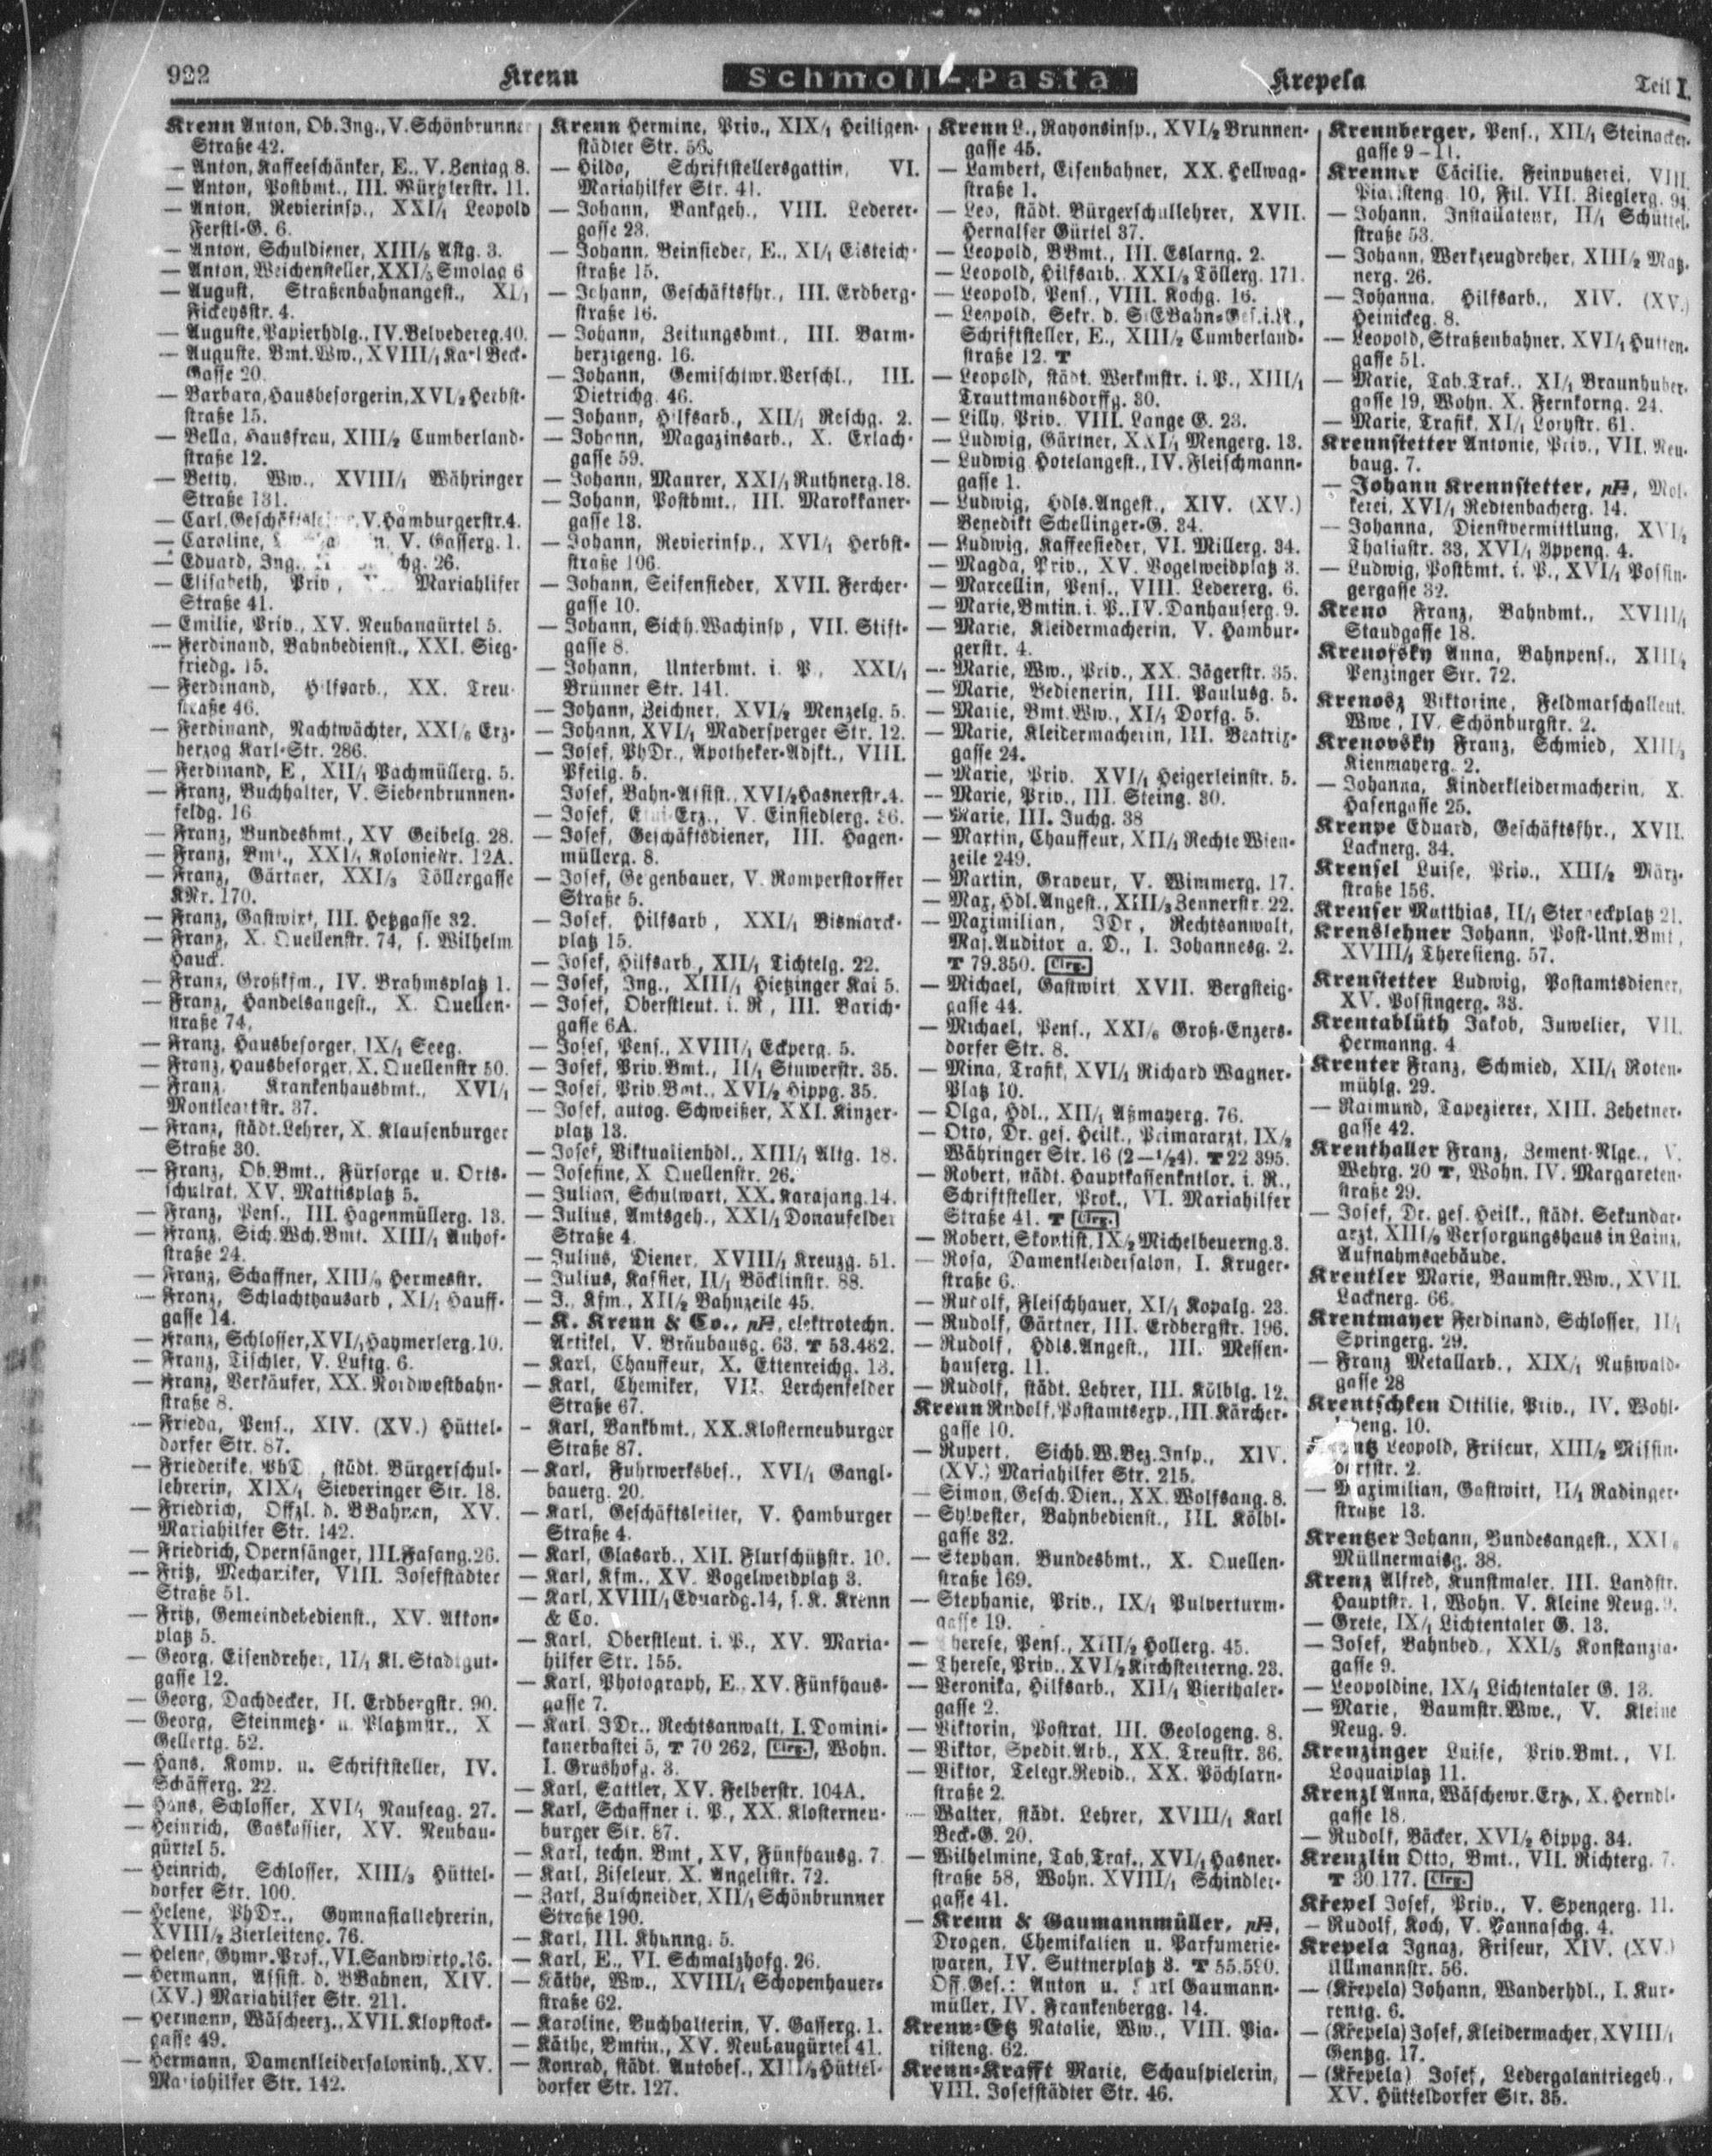 922
Krenn
Schmoll-Pasta
Krepela
Teil I.
Krenn Anton, Ob.Ing., V. Schönbrunner
Straße 42.
— Anton, Kaffeeschänker, E., V. Zentag 8.
— Anton, Postbmt., III. Würtzlerstr. 11.
— Anton, Revierinsp., XXI/1 Leopold
Ferstl-G. 6.
— Anton, Schuldiener, XIII/5 Astg. 3.
— Anton, Weichensteller, XXI/5 Smolag 6
— August, Straßenbahnangest., XI/1
Fickeysstr. 4.
— Auguste, Papierhdlg., IV. Belvedereg. 40.
— Auguste, Bmt.Ww., XVIII/1 Karl Beck-
Gasse 20.
— Barbara, Hausbesorgerin, XVI/2 Herbst-
straße 15.
— Bella, Hausfrau, XIII/2 Cumberland-
straße 12.
— Betty, Ww., XVIII/1 Währinger
Straße 131.
— Carl, V. Hamburgerstr. 4.
— Caroline, V. Gasserg. 1.
— Eduard, Ing., 26.
— Elisabeth, Priv., Mariahilfer
Straße 41.
— Emilie, Priv., XV. Neubaugürtel 5.
— Ferdinand, Bahnbedienst., XXI. Sieg-
friedg. 15.
— Ferdinand, Hilfsarb., XX. Treu-
straße 46.
— Ferdinand, Nachtwächter, XXI/6 Erz-
herzog Karl-Str. 286.
— Ferdinand, E., XII/1 Pachmüllerg. 5.
— Franz, Buchhalter, V. Siebenbrunnen-
feldg. 16
— Franz, Bundesbmt., XV Geibelg. 28.
— Franz, Bmt., XXI/1 Koloniestr. 12A.
— Franz, Gärtner, XXI/3 Töllergasse
KNr. 170.
— Franz, Gastwirt, III. Hetzgasse 32.
— Franz, X. Quellenstr. 74, s. Wilhelm
Hauck.
— Franz, Großkfm., IV. Brahmsplatz 1.
— Franz, Handelsangest., X. Quellen-
straße 74.
— Franz, Hausbesorger, IX/1 Seeg.
— Franz, Hausbesorger, X. Quellenstr 50.
— Franz, Krankenhausbmt., XVI/1
Montleartstr. 37.
— Franz, städt. Lehrer, X. Klausenburger
Straße 30.
— Franz, Ob.Bmt., Fürsorge u. Orts-
schulrat, XV. Mattisplatz 5.
— Franz, Pens., III. Hagenmüllerg. 13.
— Franz, Sich.Wch.Bmt. XIII/1 Auhof-
straße 24.
— Franz, Schaffner, XIII/9 Hermesstr.
— Franz, Schlachthausarb., XI/1 Hauff-
gasse 14.
— Franz, Schlosser, XVI/1 Haymerlerg. 10.
— Franz, Tischler, V. Luftg. 6.
— Franz, Verkäufer, XX. Nordwestbahn-
straße 8.
— Frieda, Pens., XIV. (XV.) Hüttel-
dorfer Str. 87.
— Friederike, PhD, städt. Bürgerschul-
lehrerin, XIX/1 Sieveringer Str. 18.
— Friedrich, Offzl. d. BBahnen, XV.
Mariahilfer Str. 142.
— Friedrich, Opernsänger, III. Fasang. 26.
— Fritz, Mechaniker, VIII. Josefstädter
Straße 51.
— Fritz, Gemeindebedienst., XV. Akkon-
platz 5.
— Georg, Eisendreher, II/1 Kl. Stadtgut-
gasse 12.
— Georg, Dachdecker, II. Erdbergstr. 90.
— Georg, Steinmetz- u. Platzmstr., X
Gellertg. 52.
— Hans, Komp. u. Schriftsteller, IV.
Schäfferg. 22.
— Hans, Schlosser, XVI/1 Nauseag. 27.
— Heinrich, Gaskassier, XV. Neubau-
gürtel 5.
— Heinrich, Schlosser, XIII/3 Hüttel-
dorfer Str. 100.
— Helene, PhDr., Gymnasiallehrerin,
XVIII/2 Zierleiteng. 76.
— Helene, Gymn.Prof., VI. Sandwirtg. 16.
— Hermann, Assist. d. BBahnen, XIV.
(XV.) Mariahilfer Str. 211.
— Hermann, Wäscheerz., XVII. Klopstock-
gasse 49.
— Hermann, Damenkleidersaloninh., XV.
Mariahilfer Str. 142.
Krenn Hermine, Priv., XIX/1 Heiligen-
städter Str. 56.
— Hilda, Schriftstellersgattin, VI.
Mariahilfer Str. 41.
— Johann, Bankgeh., VIII. Lederer-
gasse 23.
— Johann, Beinsieder, E., XI/1 Eisteich-
straße 15.
— Johann, Geschäftsfhr., III. Erdberg-
straße 16.
— Johann, Zeitungsbmt., III. Barm-
herzigeng. 16.
— Johann, Gemischtwr.Verschl., III.
Dietrichg. 46.
— Johann, Hilfsarb., XII/1 Reschg. 2.
— Johann, Magazinsarb., X. Erlach-
gasse 59.
— Johann, Maurer, XXI/1 Ruthnerg. 18.
— Johann, Postbmt., III. Marokkaner-
gasse 13.
— Johann, Revierinsp., XVI/1 Herbst-
straße 106.
— Johann, Seifensieder, XVII. Fercher-
gasse 10.
— Johann, Sichh.Wachinsp, VII. Stift-
gasse 8.
— Johann, Unterbmt. i. P., XXI/1
Brünner Str. 141.
— Johann, Zeichner, XVI/2 Menzelg. 5.
— Johann, XVI/1 Madersperger Str. 12.
— Josef, PhDr., Apotheker-Adjkt., VIII.
Pfeilg. 5.
Josef, Bahn-Assist., XVI/2 Hasnerstr. 4.
— Josef, Erz., V. Einsiedlerg. 36.
— Josef, Geschäftsdiener, III. Hagen-
müllerg. 8.
— Josef, Geigenbauer, V. Romperstorffer
Straße 5.
— Josef, Hilfsarb., XXI/1 Bismarck-
platz 15.
— Josef, Hilfsarb., XII/1 Tichtelg. 22.
— Josef, Ing., XIII/1 Hietzinger Kai 5.
— Josef, Oberstleut. i. R., III. Barich-
gasse 6A.
— Josef, Pens., XVIII/1 Eckperg. 5.
— Josef, Priv.Bmt., II/1 Stuwerstr. 35.
— Josef, Priv.Bmt., XVI/2 Hippg. 35.
— Josef, autog. Schweißer, XXI. Kinzer-
platz 13.
— Josef, Viktualienhdl., XIII/1 Altg. 18.
— Josefine, X. Quellenstr. 26.
— Julian, Schulwart, XX. Karajang. 14.
— Julius, Amtsgeh., XXI/1 Donaufelder
Straße 4.
— Julius, Diener, XVIII/1 Kreuzg. 51.
— Julius, Kassier, II/1 Böcklinstr. 88.
— J., Kfm., XII/2 Bahnzeile 45.
— K. Krenn & Co., pF, elektrotechn.
Artikel, V. Bräuhausg. 63. T 53.482.
— Karl, Chauffeur, X. Ettenreichg. 13.
— Karl, Chemiker, VII. Lerchenfelder
Straße 67.
— Karl, Bankbmt., XX. Klosterneuburger
Straße 87.
— Karl, Fuhrwerksbes., XVI/1 Gangl-
bauerg. 20.
— Karl, Geschäftsleiter, V. Hamburger
Straße 4.
— Karl, Glasarb., XII. Flurschützstr. 10.
— Karl, Kfm., XV. Vogelweidplatz 3.
— Karl, XVIII/1 Eduardg. 14, s. K. Krenn
& Co.
— Karl, Oberstleut. i. P., XV. Maria-
hilfer Str. 155.
— Karl, Photograph, E., XV. Fünfhaus-
gasse 7.
— Karl, JDr., Rechtsanwalt, I. Domini-
kanerbastei 5, T 70 262, Clrg., Wohn.
I. Grashofg. 3.
— Karl, Sattler, XV. Felberstr. 104A.
— Karl, Schaffner i. P., XX. Klosterneu-
burger Str. 87.
— Karl, techn. Bmt., XV. Fünfhausg. 7.
— Karl, Ziseleur, X. Angelistr. 72.
— Karl, Zuschneider, XII/1 Schönbrunner
Straße 190.
— Karl, III. Khunng. 5.
— Karl, E., VI. Schmalzhofg. 26.
— Käthe, Ww., XVIII/1 Schopenhauer-
straße 62.
— Karoline, Buchhalterin, V. Gasserg. 1.
— Käthe, Bmtin., XV. Neubaugürtel 41.
— Konrad, städt. Autobes., XIII/3 Hüttel-
dorfer Str. 127.
Krenn L., Rayonsinsp., XVI/2 Brunnen-
gasse 45.
— Lambert, Eisenbahner, XX. Hellwag-
straße 1.
— Leo, städt. Bürgerschullehrer, XVII.
Hernalser Gürtel 37.
— Leopold, BBmt., III. Eslarng. 2.
— Leopold, Hilfsarb., XXI/3 Töllerg. 171.
— Leopold, Pens., VIII. Kochg. 16.
— Leopold, Sekr. d. SEBahn-Ges.i.R.,
Schriftsteller, E., XIII/2 Cumberland-
straße 12. T
— Leopold, städt. Werkmstr. i. P., XIII/1
Trauttmansdorffg. 30.
— Lilly, Priv. VIII. Lange G. 23.
— Ludwig, Gärtner, XXI/1 Mengerg. 13.
— Ludwig, Hotelangest., IV. Fleischmann-
gasse 1.
— Ludwig, Hdls.Angest., XIV. (XV.)
Benedikt Schellinger-G. 34.
— Ludwig, Kaffeesieder, VI. Millerg. 34.
— Magda, Priv., XV. Vogelweidplatz 3.
— Marcellin, Pens., VIII. Ledererg. 6.
— Marie, Bmtin. i. P., IV. Danhauserg. 9.
— Marie, Kleidermacherin, V. Hambur-
gerstr. 4.
— Marie, Ww., Priv., XX. Jägerstr. 35.
— Marie, Bedienerin, III. Paulusg. 5.
— Marie, Bmt.Ww., XI/1 Dorfg. 5.
— Marie, Kleidermacherin, III. Beatrix-
gasse 24.
— Marie, Priv. XVI/1 Heigerleinstr. 5.
— Marie, Priv., III. Steing. 30.
— Marie, III. Juchg. 38
— Martin, Chauffeur, XII/1 Rechte Wien-
zeile 249.
— Martin, Graveur, V. Wimmerg. 17.
— Max, Hdl.Angest., XIII/3 Zennerstr. 22.
— Maximilian, JDr., Rechtsanwalt,
Maj.Auditor a. D., I. Johannesg. 2.
T 79.350. Clrg.
— Michael, Gastwirt, XVII. Bergsteig-
gasse 44.
— Michael, Pens., XXI/6 Groß-Enzers-
dorfer Str. 8.
— Mina, Trafik, XVI/1 Richard Wagner-
Platz 10.
— Olga, Hdl., XII/1 Aßmayerg. 76.
— Otto, Dr. ges. Heilk., Primararzt, IX/2
Währinger Str. 16 (2—½4). T 22 395.
— Robert, städt. Hauptkassenkntlor. i. R.,
Schriftsteller, Prok., VI. Mariahilfer
Straße 41. T Clrg.
— Robert, Skontist, IX/2 Michelbeuerng. 3.
— Rosa, Damenkleidersalon, I. Kruger-
straße 6.
— Rudolf, Fleischhauer, XI/1 Kopalg. 23.
— Rudolf, Gärtner, III. Erdbergstr. 196.
— Rudolf, Hdls.Angest., III. Messen-
hauserg. 11.
— Rudolf, städt. Lehrer, III. Kölblg. 12.
Krenn Rudolf, Postamtsexp., III. Kärcher-
gasse 10.
— Rupert, Sichh.W.Bez.Insp., XIV.
(XV.) Mariahilfer Str. 215.
— Simon, Gesch.Dien., XX. Wolfsaug. 8.
— Sylvester, Bahnbedienst., III. Kölbl-
gasse 32.
— Stephan, Bundesbmt., X. Quellen-
straße 169.
— Stephanie, Priv., IX/1 Pulverturm-
gasse 19.
— Therese, Pens., XIII/2 Hollerg. 45.
— Therese, Priv., XVI/2 Kirchstetterng. 23.
— Veronika, Hilfsarb., XII/1 Vierthaler-
gasse 2.
— Viktorin, Postrat, III. Geologeng. 8.
— Viktor, Spedit.Arb., XX. Treustr. 36.
— Viktor, Telegr.Revid., XX. Pöchlarn-
straße 2.
— Walter, städt. Lehrer, XVIII/1 Karl
Beck-G. 20.
— Wilhelmine, Tab.Traf., XVI/1 Hasner-
straße 58, Wohn. XVIII/1 Schindler-
gasse 41.
— Krenn & Gaumannmüller, pF,
Drogen, Chemikalien u. Parfumerie-
waren, IV. Suttnerplatz 8. T 55.590.
Off.Ges.: Anton u. Karl Gaumann-
müller, IV. Frankenbergg. 14.
Krenn-Etz Natalie, Ww., VIII. Pia-
risteng. 62.
Krenn-Krafft Marie, Schauspielerin,
VIII. Josefstädter Str. 46.
Krennberger, Pens., XII/1 Steinacker-
gasse 9—11.
Krenner Cäcilie, Feinputzerei, VIII.
Piaristeng. 10, Fil. VII. Zieglerg. 94.
— Johann, Installateur, II/1 Schüttel-
straße 53.
— Johann, Werkzeugdreher, XIII/2 Matz-
nerg. 26.
— Johanna, Hilfsarb., XIV. (XV.)
Heinickeg. 8.
— Leopold, Straßenbahner, XVI/1 Hutten-
gasse 51.
— Marie, Tab.Traf., XI/1 Braunhuber-
gasse 19, Wohn. X. Fernkorng. 24.
— Marie, Trafik, XI/1 Lorystr. 61.
Krennstetter Antonie, Priv., VII. Neu-
baug. 7.
— Johann Krennstetter, pF, Mol-
kerei, XVI/1 Redtenbacherg. 14.
— Johanna, Dienstvermittlung, XVI/2
Thaliastr. 33, XVI/1 Yppeng. 4.
— Ludwig, Postbmt. i. P., XVI/1 Possin-
gergasse 32.
Kreno Franz, Bahnbmt., XVIII/1
Staudgasse 18.
Krenofsky Anna, Bahnpens., XIII/2
Penzinger Str. 72.
Krenosz Viktorine, Feldmarschalleut.
Wwe., IV. Schönburgstr. 2.
Krenovsky Franz, Schmied, XIII/3
Kienmayerg. 2.
— Johanna, Kinderkleidermacherin, X.
Hasengasse 25.
Krenpe Eduard, Geschäftsfhr., XVII.
Lacknerg. 34.
Krensel Luise, Priv., XIII/2 März-
straße 156.
Krenser Matthias, II/1 Sterneckplatz 21.
Krenslehner Johann, Post-Unt.Bmt.,
XVIII/1 Theresieng. 57.
Krenstetter Ludwig, Postamtsdiener,
XV. Possingerg. 33.
Krentablüth Jakob, Juwelier, VII.
Hermanng. 4
Krenter Franz, Schmied, XII/1 Roten-
mühlg. 29.
— Raimund, Tapezierer, XIII. Zehetner-
gasse 42.
Krenthaller Franz, Zement-Nlge., V.
Wehrg. 20 T, Wohn. IV. Margareten-
straße 29.
— Josef, Dr. ges. Heilk., städt. Sekundar-
arzt, XIII/9 Versorgungshaus in Lainz,
Aufnahmsgebäude.
Krentler Marie, Baumstr.Ww., XVII.
Lacknerg. 66.
Krentmayer Ferdinand, Schlosser, II/1
Springerg. 29.
— Franz Metallarb., XIX/1 Nußwald-
gasse 28
Krentschken Ottilie, Priv., IV. Wohl-
lebeng. 10.
Leopold, Friseur, XIII/2 Missin-
dorfstr. 2.
— Maximilian, Gastwirt, II/1 Radinger-
straße 13.
Krentzer Johann, Bundesangest., XXI/6
Müllnermaisg. 38.
Krenz Alfred, Kunstmaler, III. Landstr.
Hauptstr. 1, Wohn. V. Kleine Neug. 9.
— Grete, IX/1 Lichtentaler G. 13.
— Josef, Bahnbed., XXI/5 Konstanzia-
gasse 9.
— Leopoldine, IX/1 Lichtentaler G. 13.
— Marie, Baumstr.Wwe., V. Kleine
Neug. 9.
Krenzinger Luise, Priv.Bmt., VI.
Loquaiplatz 11.
Krenzl Anna, Wäschewr.Erz., X. Herndl-
gasse 18.
— Rudolf, Bäcker, XVI/2 Hippg. 34.
Krenzlin Otto, Bmt., VII. Richterg. 7.
T 30.177. Clrg.
Křepel Josef, Priv., V. Spengerg. 11.
— Rudolf, Koch, V. Vannaschg. 4.
Krepela Ignaz, Friseur, XIV. (XV.)
Ullmannstr. 56.
— (Křepela) Johann, Wanderhdl., I. Kur-
rentg. 6.
— (Křepela) Josef, Kleidermacher, XVIII/1
Gentzg. 17.
— (Křepela) Josef, Ledergalantriegeh.,
XV. Hütteldorfer Str. 35.